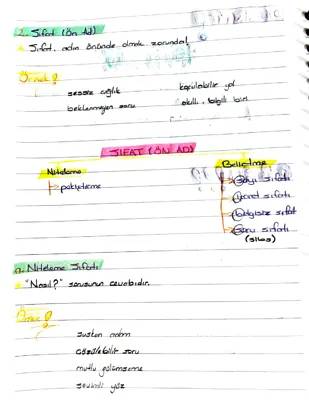 2. Sıfat (Ön Ad)
Sıfat, adın önünde olmak zorunda!
Örnek?
sessiz çığlık
kaçılabilir yol
beklenmeyen soru
akıllı, bilgili biri
SIFAT (ÖN AD)
Niteleme
Belirtme
pekiştirme
Sayı sıfatı
İşaret sıfatı
Belgisiz sıfat
Soru sıfatı
(sibs)
a. Niteleme Sıfatı
"Nasıl?" sorusunun cevabıdır.
Örnek?
suskun adam
çözülebilir soru
mutlu gülümseme
sevimli yüz